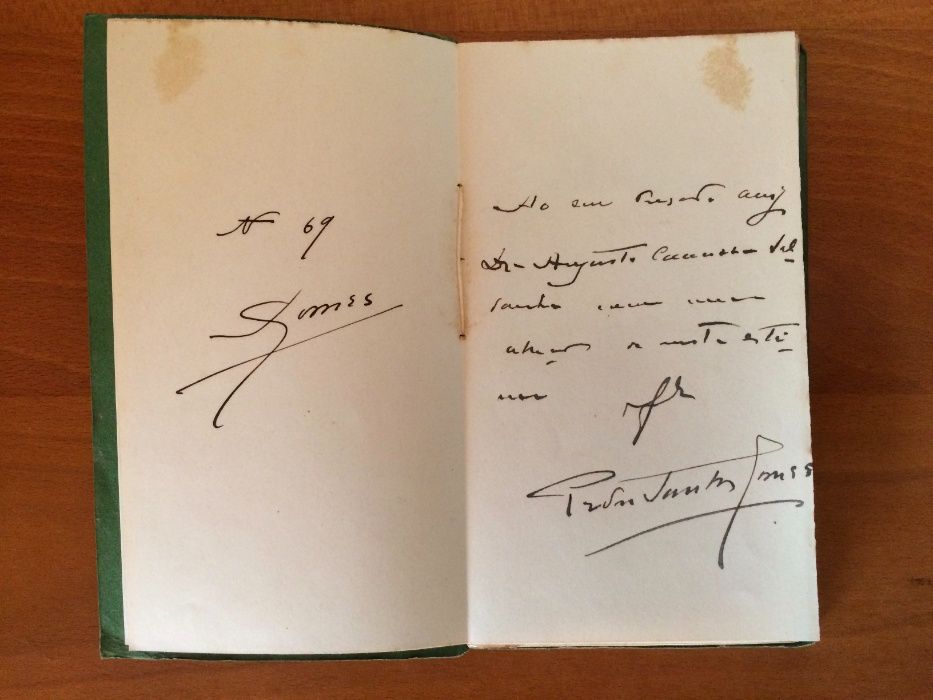 Nº 69
SGomes
Ao seu prezado amigo
Dr. Augusto Cammossa Sal-
danha com um
abraço e muita esti-
ma
Pedro Santos Gomes